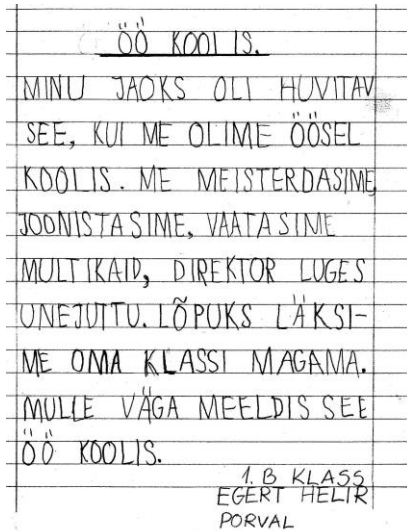 ÖÖ KOOLIS.
MINU JAOKS OLI HUVITAV
SEE, KUI ME OLIME ÖÖSEL
KOOLIS. ME MEISTERDASIME,
JOONISTASIME, VAATASIME
MULTIKAID, DIREKTOR LUGES
UNEJUTTU. LÕPUKS LÄKSI-
ME OMA KLASSI MAGAMA.
MULLE VÄGA MEELDIS SEE
ÖÖ KOOLIS.
1. B KLASS
EGERT HELIR
PORVAL